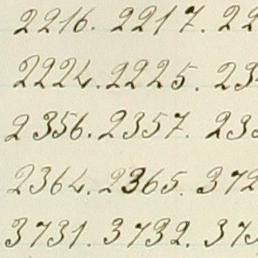 2216. 2217. 22
2224. 2225. 23
2356. 2357. 235
2364. 2365. 372
3731. 3732. 373